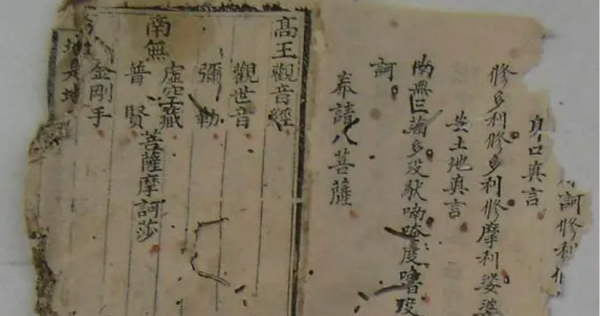 訶修利
口真言
修多利修多利修摩利娑婆
安土地真言
南無三萬多沒馱喃唵度嚕
訶
奉請八菩薩
高王觀音經
觀世音
彌勒
南無
虛空藏
普賢
菩薩摩訶莎
金剛手